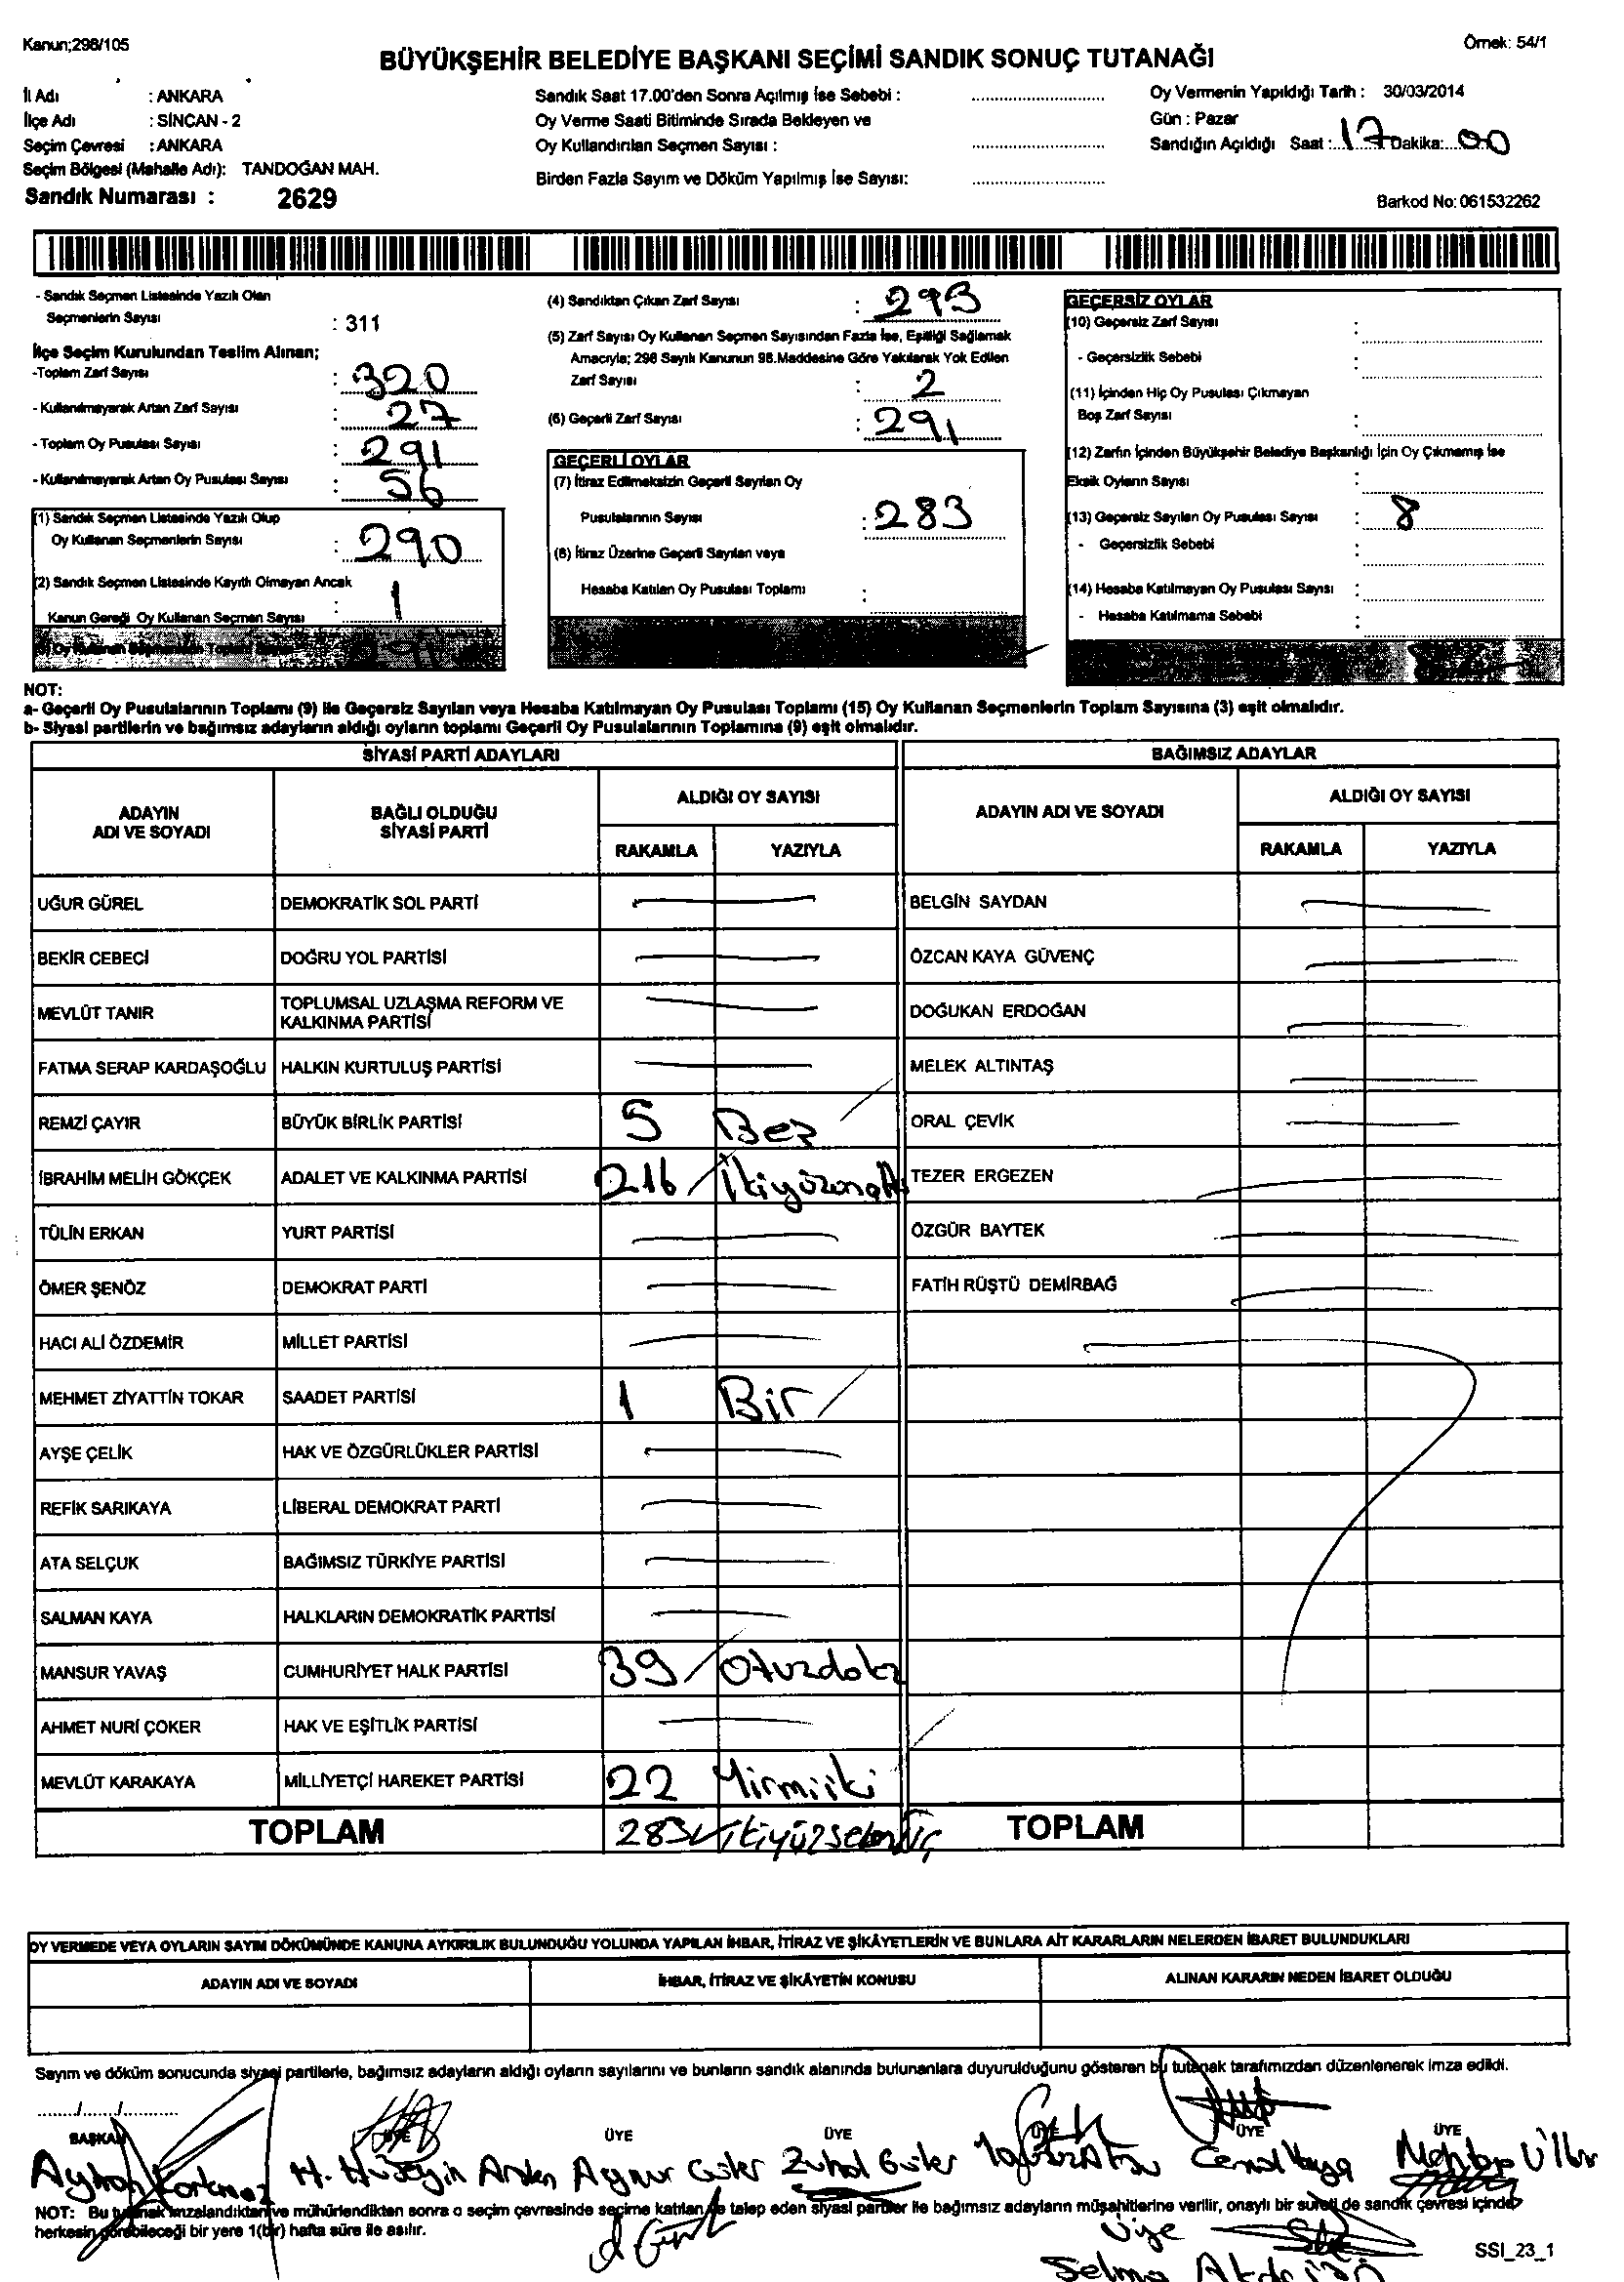 Kanun;298/105
Örnek: 54/1
BÜYÜKŞEHİR BELEDİYE BAŞKANI SEÇİMİ SANDIK SONUÇ TUTANAĞI
İl Adı : ANKARA
İlçe Adı : SİNCAN - 2
Seçim Çevresi : ANKARA
Seçim Bölgesi (Mahalle Adı): TANDOĞAN MAH.
Sandık Numarası : 2629
Sandık Saat 17.00'den Sonra Açılmış İse Sebebi :
Oy Verme Saati Bitiminde Sırada Bekleyen ve
Oy Kullandırılan Seçmen Sayısı :
Birden Fazla Sayım ve Döküm Yapılmış İse Sayısı:
Oy Vermenin Yapıldığı Tarih : 30/03/2014
Gün : Pazar
Sandığın Açıldığı Saat : 17 Dakika: 00
Barkod No: 061532262
- Sandık Seçmen Listesinde Yazılı Olan
Seçmenlerin Sayısı : 311
İlçe Seçim Kurulundan Teslim Alınan;
-Toplam Zarf Sayısı : 320
- Kullanılmayarak Artan Zarf Sayısı : 27
- Toplam Oy Pusulası Sayısı : 291
- Kullanılmayarak Artan Oy Pusulası Sayısı : 56
(1) Sandık Seçmen Listesinde Yazılı Olup
Oy Kullanan Seçmenlerin Sayısı : 290
(2) Sandık Seçmen Listesinde Kayıtlı Olmayan Ancak
Kanun Gereği Oy Kullanan Seçmen Sayısı : 1
(3) Oy Kullanan Seçmenlerin Toplam Sayısı 291
(4) Sandıktan Çıkan Zarf Sayısı : 293
(5) Zarf Sayısı Oy Kullanan Seçmen Sayısından Fazla İse, Eşitliği Sağlamak
Amacıyla; 298 Sayılı Kanunun 98.Maddesine Göre Yakılarak Yok Edilen
Zarf Sayısı : 2
(6) Geçerli Zarf Sayısı : 291
GEÇERLİ OYLAR
(7) İtiraz Edilmeksizin Geçerli Sayılan Oy
Pusulalarının Sayısı : 283
(8) İtiraz Üzerine Geçerli Sayılan veya
Hesaba Katılan Oy Pusulası Toplamı :
GEÇERSİZ OYLAR
(10) Geçersiz Zarf Sayısı :
- Geçersizlik Sebebi :
(11) İçinden Hiç Oy Pusulası Çıkmayan
Boş Zarf Sayısı :
(12) Zarfın İçinden Büyükşehir Belediye Başkanlığı İçin Oy Çıkmamış İse
Eksik Oyların Sayısı :
(13) Geçersiz Sayılan Oy Pusulası Sayısı : 8
- Geçersizlik Sebebi :
(14) Hesaba Katılmayan Oy Pusulası Sayısı :
- Hesaba Katılmama Sebebi :
NOT:
a- Geçerli Oy Pusulalarının Toplamı (9) ile Geçersiz Sayılan veya Hesaba Katılmayan Oy Pusulası Toplamı (15) Oy Kullanan Seçmenlerin Toplam Sayısına (3) eşit olmalıdır.
b- Siyasi partilerin ve bağımsız adayların aldığı oyların toplamı Geçerli Oy Pusulalarının Toplamına (9) eşit olmalıdır.
SİYASİ PARTİ ADAYLARI
ADAYIN ADI VE SOYADI
BAĞLI OLDUĞU SİYASİ PARTİ
ALDIĞI OY SAYISI
RAKAMLA YAZIYLA
UĞUR GÜREL DEMOKRATİK SOL PARTİ
BEKİR CEBECİ DOĞRU YOL PARTİSİ
MEVLÜT TANIR TOPLUMSAL UZLAŞMA REFORM VE
KALKINMA PARTİSİ
FATMA SERAP KARDAŞOĞLU HALKIN KURTULUŞ PARTİSİ
REMZİ ÇAYIR BÜYÜK BİRLİK PARTİSİ 5 Beş
İBRAHİM MELİH GÖKÇEK ADALET VE KALKINMA PARTİSİ 216 İkiyüzonaltı
TÜLİN ERKAN YURT PARTİSİ
ÖMER ŞENÖZ DEMOKRAT PARTİ
HACI ALİ ÖZDEMİR MİLLET PARTİSİ
MEHMET ZİYATTİN TOKAR SAADET PARTİSİ 1 Bir
AYŞE ÇELİK HAK VE ÖZGÜRLÜKLER PARTİSİ
REFİK SARIKAYA LİBERAL DEMOKRAT PARTİ
ATA SELÇUK BAĞIMSIZ TÜRKİYE PARTİSİ
SALMAN KAYA HALKLARIN DEMOKRATİK PARTİSİ
MANSUR YAVAŞ CUMHURİYET HALK PARTİSİ 39 Otuzdokuz
AHMET NURİ ÇOKER HAK VE EŞİTLİK PARTİSİ
MEVLÜT KARAKAYA MİLLİYETÇİ HAREKET PARTİSİ 22 Yirmiiki
TOPLAM 283 İkiyüzseksenüç
BAĞIMSIZ ADAYLAR
ADAYIN ADI VE SOYADI
ALDIĞI OY SAYISI
RAKAMLA YAZIYLA
BELGİN SAYDAN
ÖZCAN KAYA GÜVENÇ
DOĞUKAN ERDOĞAN
MELEK ALTINTAŞ
ORAL ÇEVİK
TEZER ERGEZEN
ÖZGÜR BAYTEK
FATİH RÜŞTÜ DEMİRBAĞ
TOPLAM
OY VERMEDE VEYA OYLARIN SAYIM DÖKÜMÜNDE KANUNA AYKIRILIK BULUNDUĞU YOLUNDA YAPILAN İHBAR, İTİRAZ VE ŞİKÂYETLERİN VE BUNLARA AİT KARARLARIN NELERDEN İBARET BULUNDUKLARI
ADAYIN ADI VE SOYADI İHBAR, İTİRAZ VE ŞİKÂYETİN KONUSU ALINAN KARARIN NEDEN İBARET OLDUĞU
Sayım ve döküm sonucunda siyasi partilerle, bağımsız adayların aldığı oyların sayılarını ve bunların sandık alanında bulunanlara duyurulduğunu gösteren bu tutanak tarafımızdan düzenlenerek imza edildi.
....../....../............
BAŞKAN ÜYE ÜYE ÜYE ÜYE ÜYE
Ayhan Korkmaz H. Hüseyin Aynur Güler Zuhal Güler Cemal Kaya Mehtap
NOT: Bu tutanak imzalandıktan ve mühürlendikten sonra o seçim çevresinde seçime katılan ve talep eden siyasi partiler ile bağımsız adayların müşahitlerine verilir, onaylı bir sureti de sandık çevresi içinde
herkesin görebileceği bir yere 1(bir) hafta süre ile asılır.
Üye
Selma
SSI_23_1